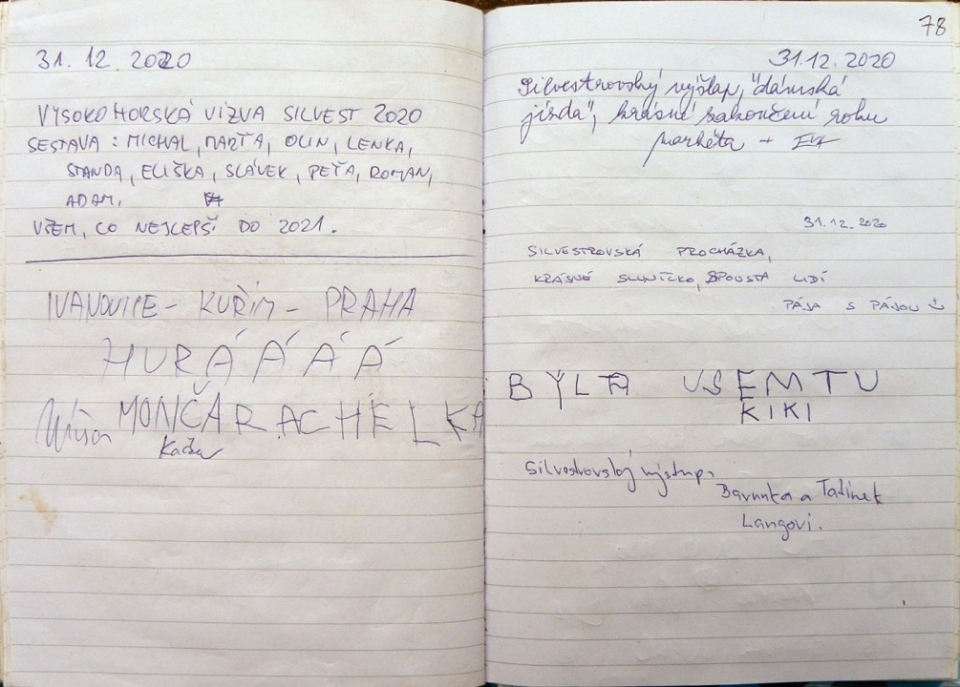 31. 12. 2020
VYSOKOHORSKÁ VÍZVA SILVEST 2020
SESTAVA : MICHAL, MARŤA, OLIN, LENKA,
STANDA, ELIŠKA, SLÁVEK, PEŤA, ROMAN,
ADAM,
VŠEM, CO NEJLEPŠÍ DO 2021.
IVANOVICE - KUŘIM - PRAHA
HURÁ Á Á Á
MONČA RACHELKA
Kačka
78
31.12.2020
Silvestrovský výšlap, "dámská
jízda", krásné zakončení roku
Markéta + Eva
31.12.2020
SILVESTROVSKÁ PROCHÁZKA,
KRÁSNÉ SLUNÍČKO, SPOUSTA LIDÍ
PÁJA S PÁJOU
BYLA VSEM TU
KIKI
Silvestrovský výstup,
Barunka a Tatínek
Langovi.